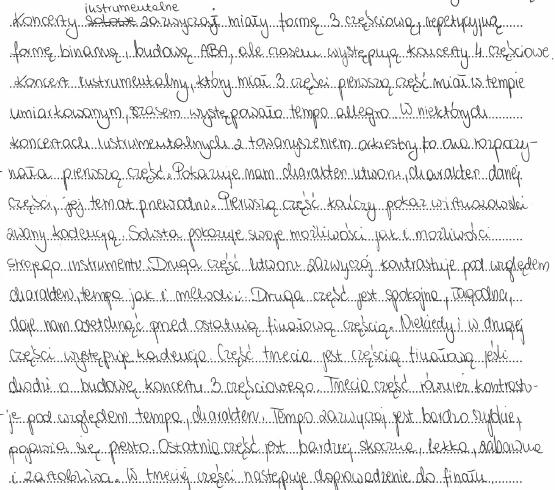 instrumentalne
Koncerty solowe zazwyczaj miały formę 3 częściową, repetycyjną
formę binarną, budowę ABA, ale czasem występują koncerty 4 częściowe.
Koncert instrumentalny, który miał 3 części pierwszą część miał w tempie
umiarkowanym, czasem występowało tempo allegro. W niektórych
koncertach instrumentalnych z towarzyszeniem orkiestry to ona rozpoczy-
nała pierwszą część. Pokazuje nam charakter utworu, charakter danej
części, jej temat przewodni. Pierwszą część kończy pokaz wirtuozowski
zwany kadencją. Solista pokazuje swoje możliwości jak i możliwości
swojego instrumentu. Druga część utworu zazwyczaj kontrastuje pod względem
charakteru, tempa jak i melodii. Druga część jest spokojna, łagodna,
daje nam odetchnąć przed ostatnią finałową częścią. Niekiedy i w drugiej
części występuje kadencja. Część trzecia jest częścią finałową jeśli
chodzi o budowę koncertu 3 częściowego. Trzecia część również kontrastu-
je pod względem tempa, charakteru. Tempo zazwyczaj jest bardzo szybkie,
pojawia się presto. Ostatnia część jest bardziej skoczna, lekka, zabawna
i żartobliwa. W trzeciej części następuje doprowadzenie do finału